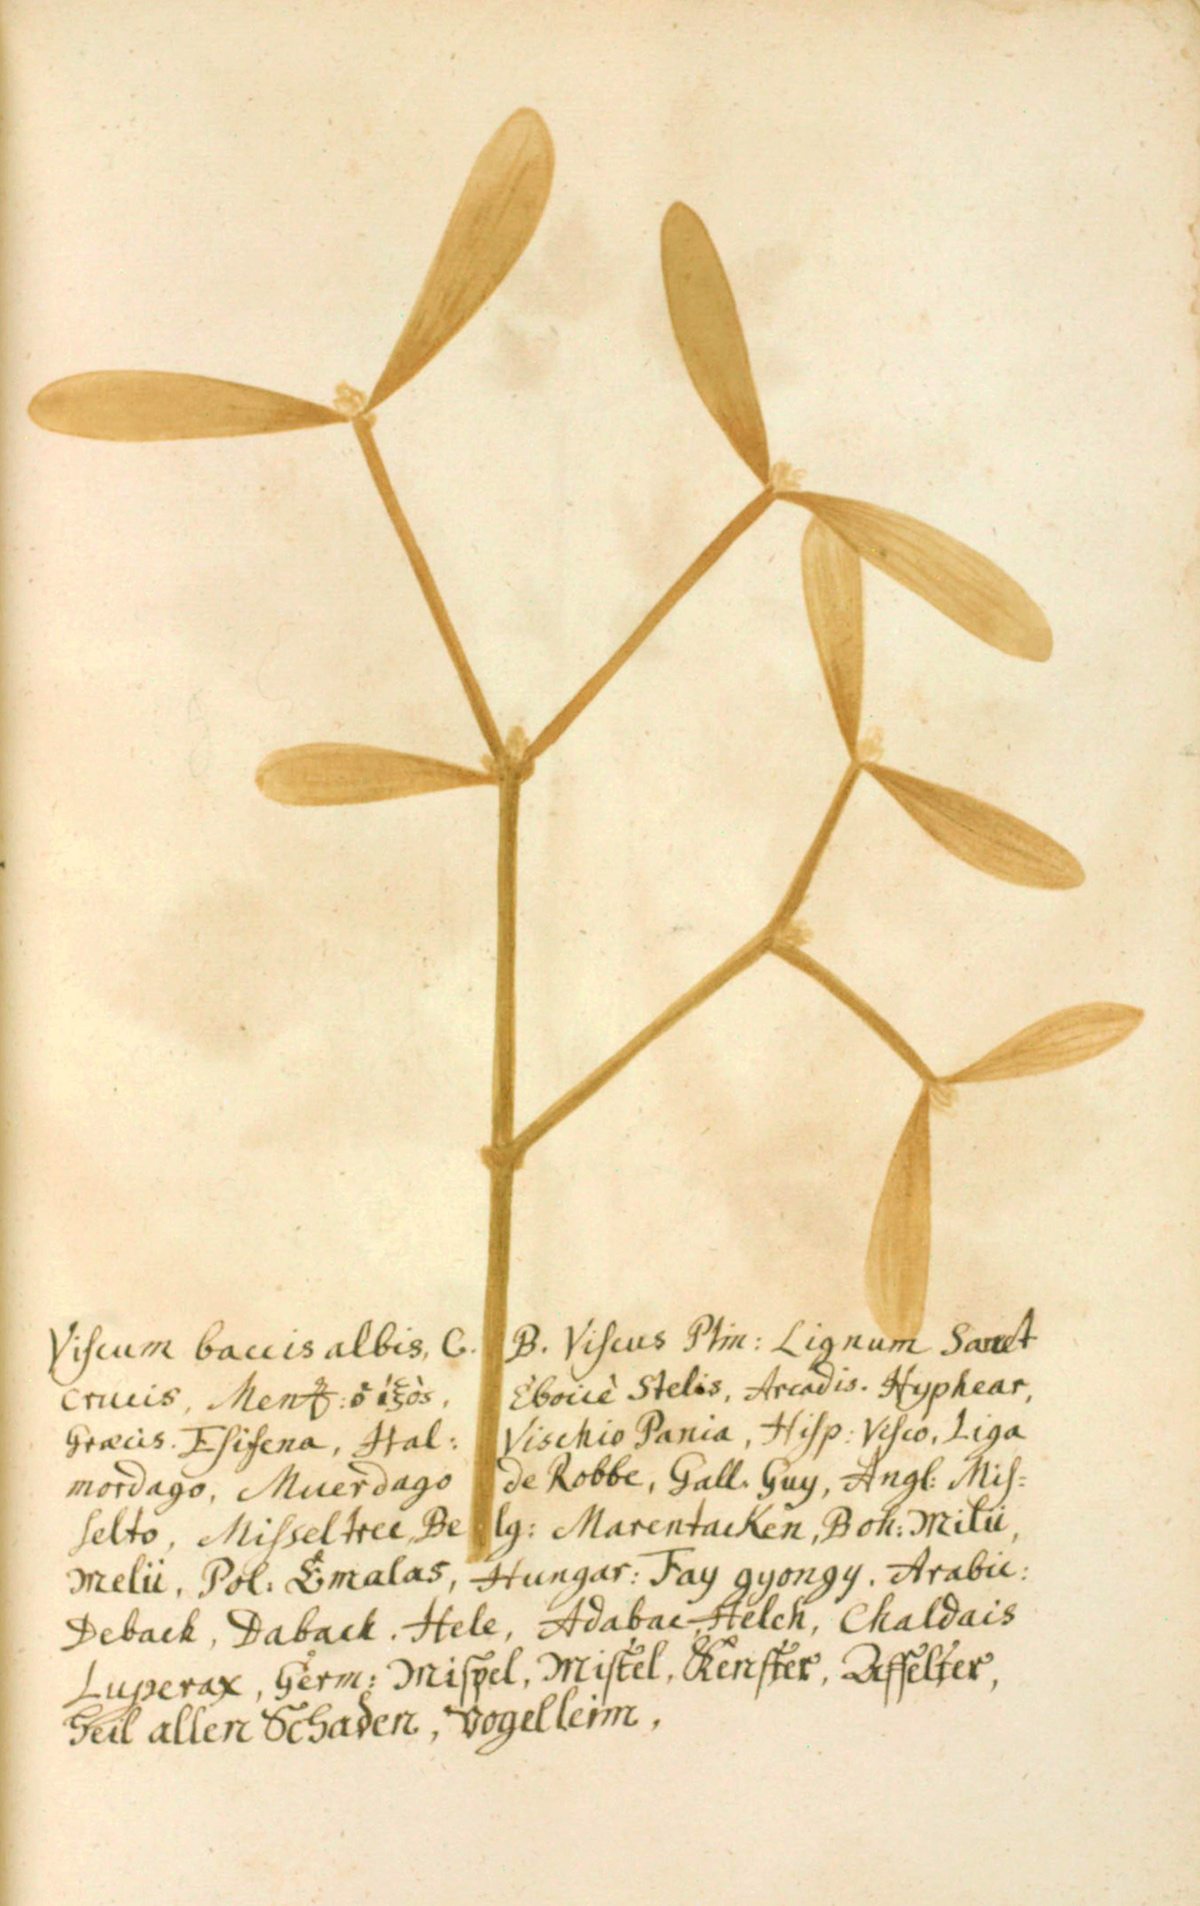 Viſcum baccis albis, C. B. Viſcus Plin: Lignum Sanct
crucis, Ment: ὁ ἰξὸς, Eboicè Stelis, Arcadis. Hyphear,
Græcis. Eſifena, Ital: Vischio Pania, Hiſp: Viſco, Liga
mordago, Muerdago de Robbe, Gall. Guy, Angl: Miſ:
ſelto, Miſſeltree, Belg: Marentacken, Boh: Milii,
melii, Pol: Emalas, Hungar: Fay gyongy. Arabic:
Deback, Daback. Hele, Adabac, Helch, Chaldais
Luperax, Germ: Miſpel, Miſtel, Kenſter, Affelter,
Heil allen Schaden, Vogelleim,